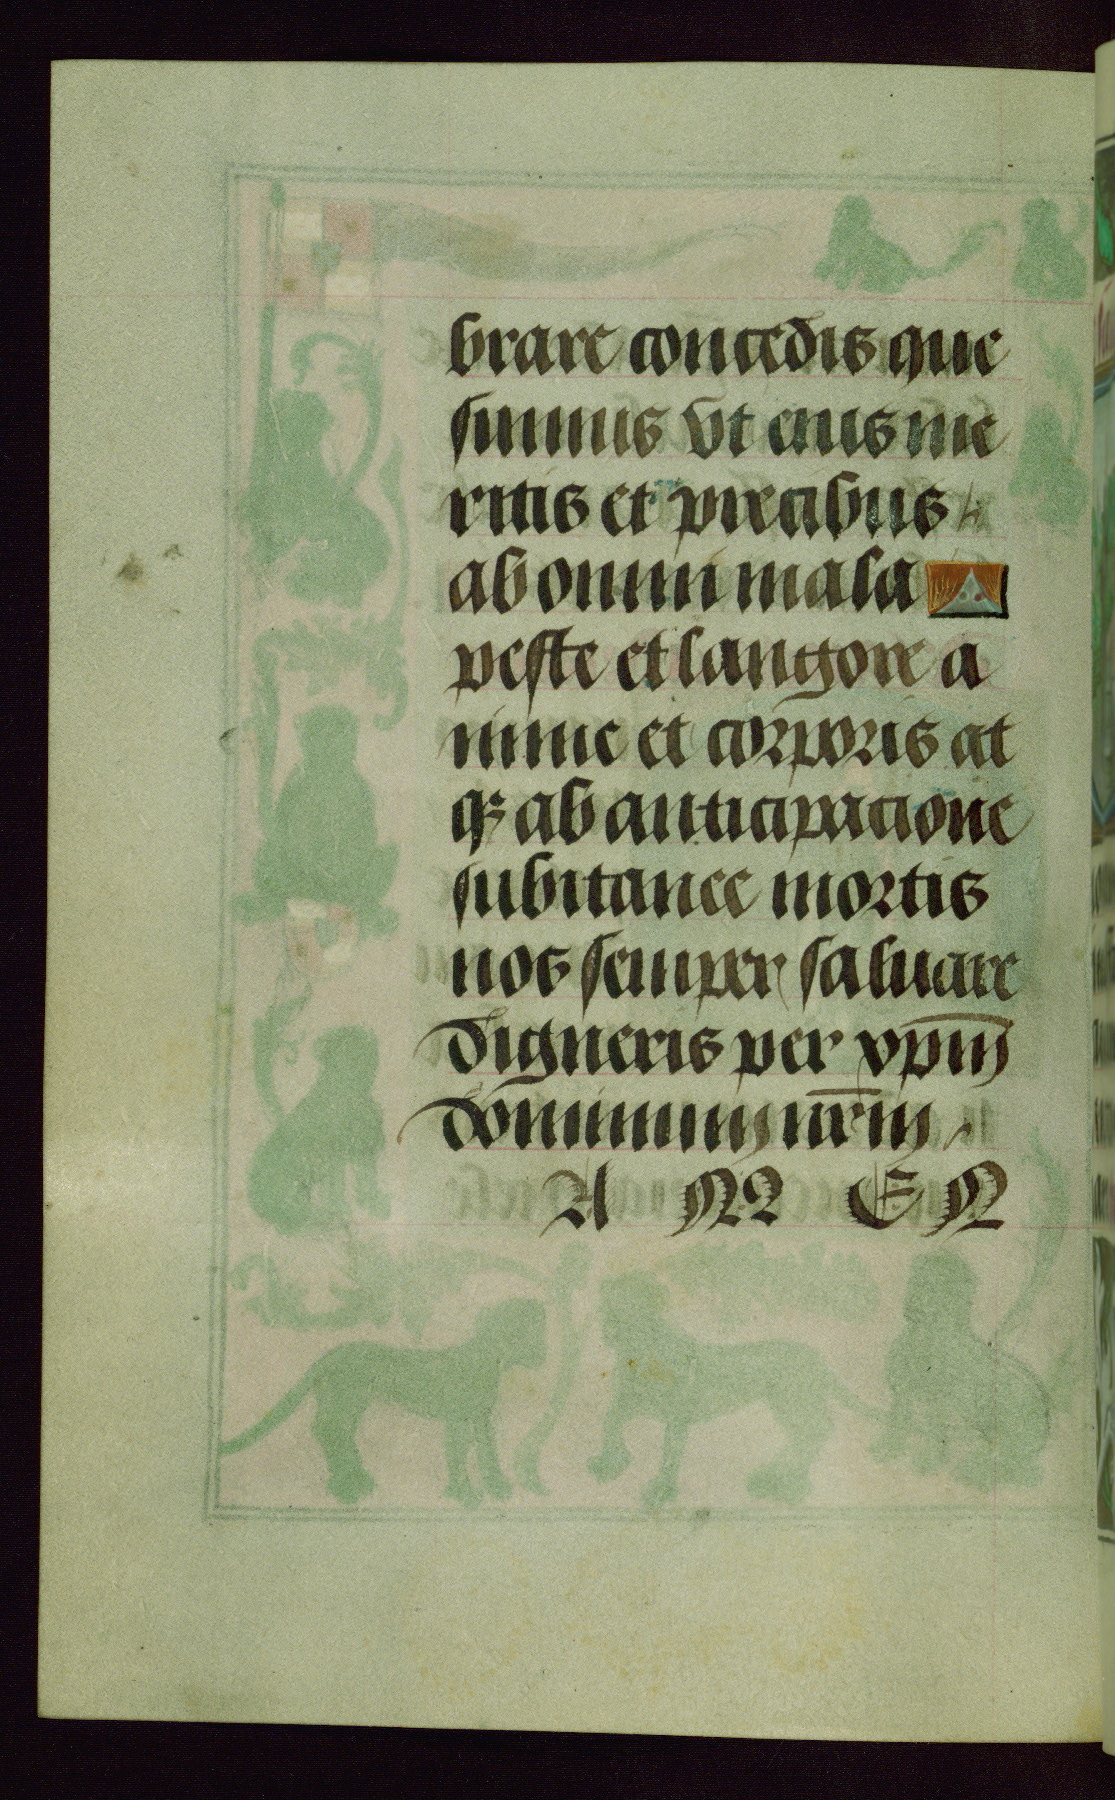 brare concedis que
sumus vt eius me
ritis et precibus
ab omni mala
peste et langore a
nime et corporis at
qꝫ ab anticipacione
subitanee mortis
nos semper saluare
digneris per xp̄m
dominum nr̄m
A M E N